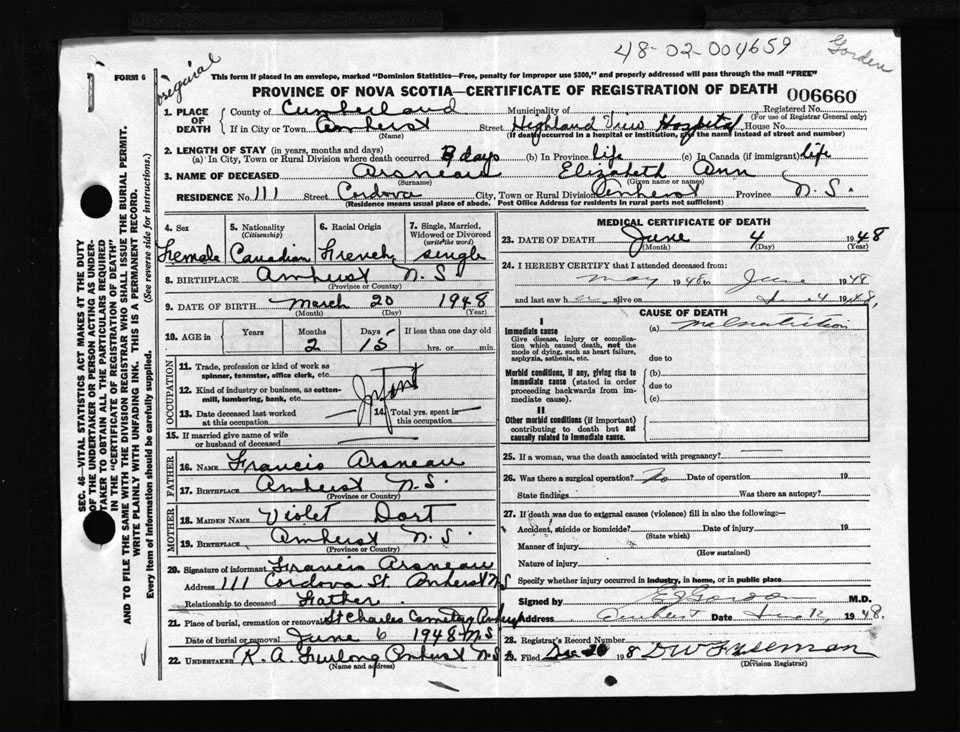 48-02-004659
Gordon
original
FORM 6
This form if placed in an envelope, marked "Dominion Statistics—Free, penalty for improper use $300," and properly addressed will pass through the mail "FREE"
PROVINCE OF NOVA SCOTIA—CERTIFICATE OF REGISTRATION OF DEATH 006660
SEC. 46—VITAL STATISTICS ACT MAKES IT THE DUTY
OF THE UNDERTAKER OR PERSON ACTING AS UNDER-
TAKER TO OBTAIN ALL THE PARTICULARS REQUIRED
IN THE "CERTIFICATE OF REGISTRATION OF DEATH"
AND TO FILE THE SAME WITH THE DIVISION REGISTRAR WHO SHALL ISSUE THE BURIAL PERMIT.
WRITE PLAINLY WITH UNFADING INK. THIS IS A PERMANENT RECORD.
Every item of information should be carefully supplied. (See reverse side for instructions.)
1. PLACE OF DEATH
County of Cumberland Municipality of Registered No.
(For use of Registrar General only)
If in City or Town Amherst Street Highland View Hospital House No.
(Name) (If death occurred in a hospital or institution, give the name instead of street and number)
2. LENGTH OF STAY (in years, months and days)
(a) In City, Town or Rural Division where death occurred days (b) In Province life (c) In Canada (if immigrant) life
3. NAME OF DECEASED Arsneau Elizabeth Ann
(Surname) (Given name or names)
RESIDENCE No. 111 Street Cordova City, Town or Rural Division Amherst Province N.S.
(Residence means usual place of abode. Post Office Address for residents in rural parts not sufficient)
4. Sex
Female
5. Nationality
(Citizenship)
Canadian
6. Racial Origin
French
7. Single, Married,
Widowed or Divorced
(write the word)
single
8. BIRTHPLACE Amherst N.S
(Province or County)
9. DATE OF BIRTH March 20 1948
(Month) (Day) (Year)
10. AGE in Years Months Days If less than one day old
2 15 hrs. or min.
OCCUPATION
11. Trade, profession or kind of work as
spinner, teamster, office clerk, etc.
12. Kind of industry or business, as cotton-
mill, lumbering, bank, etc.
Infant
13. Date deceased last worked
at this occupation
14. Total yrs. spent in
this occupation
15. If married give name of wife
or husband of deceased
FATHER
16. NAME Francis Arsneau
17. BIRTHPLACE Amherst N.S.
(Province or Country)
MOTHER
18. MAIDEN NAME Violet Dort
19. BIRTHPLACE Amherst N.S.
(Province or Country)
20. Signature of informant Francis Arsneau
Address 111 Cordova St. Amherst NS
Relationship to deceased Father
21. Place of burial, cremation or removal St Charles Cemetery Amherst
Date of burial or removal June 6 1948 N.S
22. UNDERTAKER R. A. Furlong Amherst N.S
(Name and address)
MEDICAL CERTIFICATE OF DEATH
23. DATE OF DEATH June 4 1948
(Month) (Day) (Year)
24. I HEREBY CERTIFY that I attended deceased from:
May 1948 to June 1948
and last saw her alive on June 4 1948,
CAUSE OF DEATH
I
Immediate cause
Give disease, injury or compli-
cation which caused death, not the
mode of dying, such as heart failure,
asphyxia, asthenia, etc.
(a) Malnutrition
due to
Morbid conditions, if any, giving rise to
immediate cause (stated in order
proceeding backwards from im-
mediate cause).
(b)
due to
(c)
II
Other morbid conditions (if important)
contributing to death but not
causally related to immediate cause.
25. If a woman, was the death associated with pregnancy?
26. Was there a surgical operation? No Date of operation 19
State findings Was there an autopsy?
27. If death was due to external causes (violence) fill in also the following:—
Accident, suicide or homicide? Date of injury 19
(State which)
Manner of injury
(How sustained)
Nature of injury
Specify whether injury occurred in industry, in home, or in public place
Signed by E Gordon M.D.
Address Amherst Date June 12, 1948.
28. Registrar's Record Number
29. Filed 198 D W Freeman
(Division Registrar)